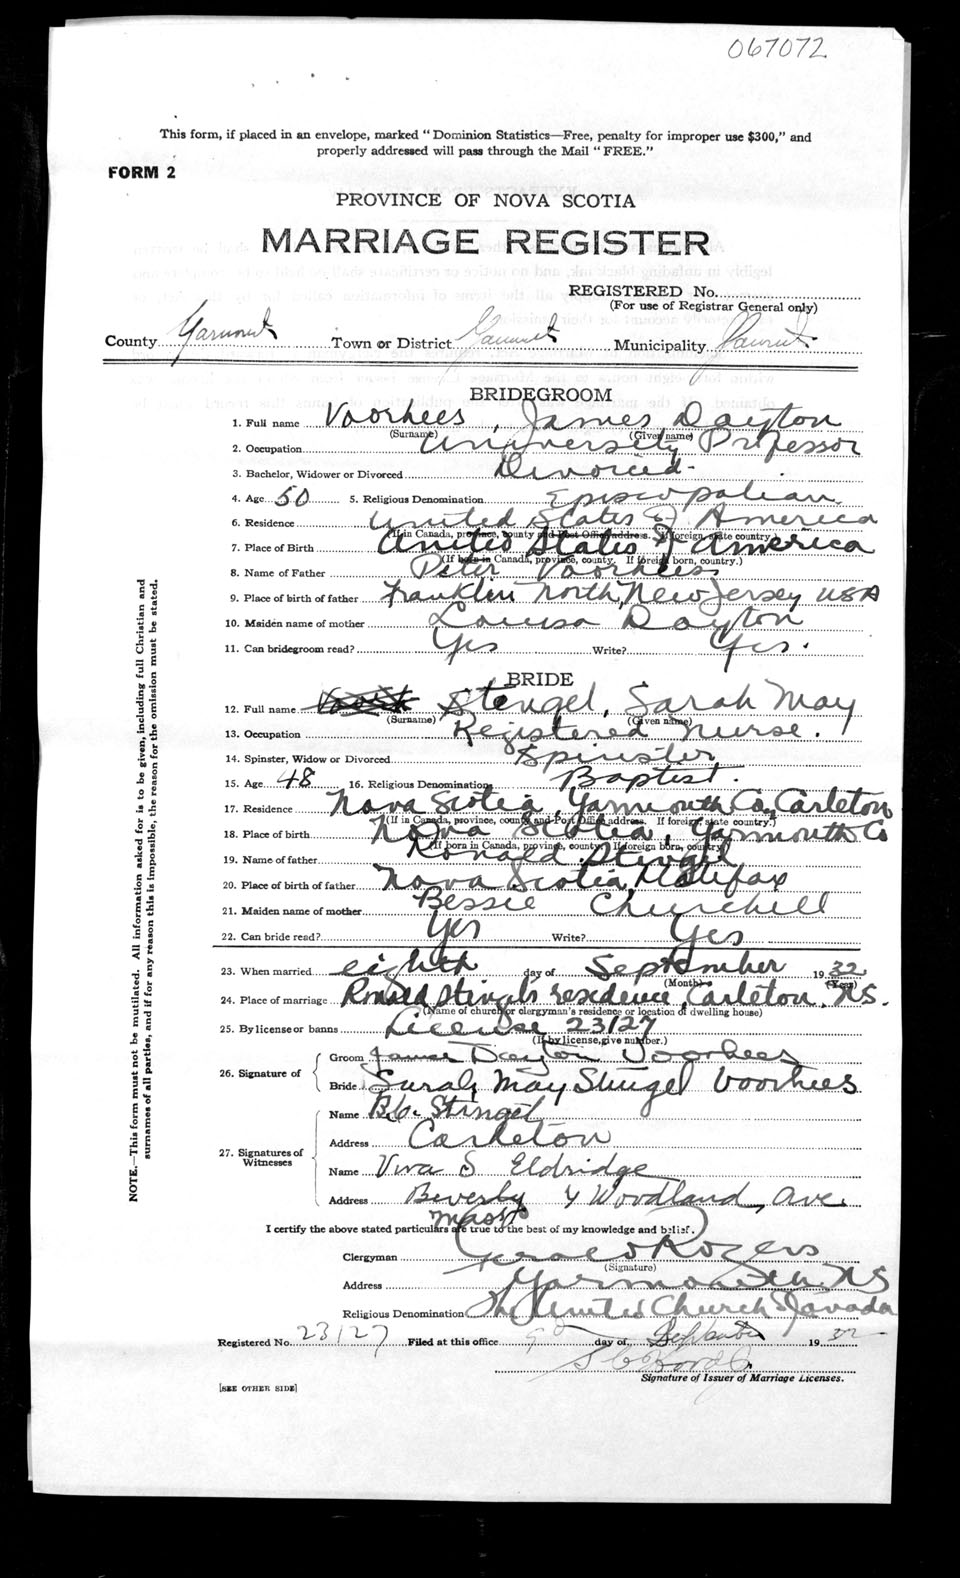 067072
This form, if placed in an envelope, marked "Dominion Statistics—Free, penalty for improper use $300," and
properly addressed will pass through the Mail "FREE."
FORM 2
PROVINCE OF NOVA SCOTIA
MARRIAGE REGISTER
REGISTERED No.
(For use of Registrar General only)
County Yarmouth Town or District Yarmouth Municipality Yarmouth
BRIDEGROOM
1. Full name Voorhees, James Dayton
(Surname) (Given name)
2. Occupation University Professor
3. Bachelor, Widower or Divorced Divorced-
4. Age 50 5. Religious Denomination Episcopalian
6. Residence United States of America
(If in Canada, province, county and Post Office address. If foreign, state country.)
7. Place of Birth United States of America
(If born in Canada, province, county. If foreign born, country.)
8. Name of Father Peter Voorhees
9. Place of birth of father Franklin North, New Jersey USA
10. Maiden name of mother Louisa Dayton
11. Can bridegroom read? Yes Write? Yes.
BRIDE
12. Full name Stengel, Sarah May
(Surname) (Given name)
13. Occupation Registered Nurse.
14. Spinster, Widow or Divorced Spinster
15. Age 48 16. Religious Denomination Baptist.
17. Residence Nova Scotia, Yarmouth Co, Carleton
(If in Canada, province, county and Post Office address. If foreign, state country.)
18. Place of birth Nova Scotia, Yarmouth Co
(If born in Canada, province, county. If foreign born, country)
19. Name of father Ronald Stengel
20. Place of birth of father Nova Scotia, Halifax
21. Maiden name of mother Bessie Churchill
22. Can bride read? Yes Write? Yes
23. When married eighth day of September 1932
(Month) (Year)
24. Place of marriage Ronald Stingel's residence, Carleton, N.S.
(Name of church or clergyman's residence or location of dwelling house)
25. By license or banns License 23127
(If by license, give number.)
26. Signature of
Groom James Dayton Voorhees
Bride Sarah May Stingel Voorhees
27. Signatures of Witnesses
Name Stingel
Address Carleton
Name Vera S Eldridge
Address Beverly 4 Woodland, Ave.
Mass
I certify the above stated particulars are true to the best of my knowledge and belief.
Clergyman Gerald Rogers
(Signature)
Address Yarmouth, NS
Religious Denomination The United Church Canada
Registered No. 23127 Filed at this office 9 day of September 1932
Signature of Issuer of Marriage Licenses.
[SEE OTHER SIDE]
NOTE.—This form must not be mutilated. All information asked for is to be given, including full Christian and
surnames of all parties, and if for any reason this is impossible, the reason for the omission must be stated.